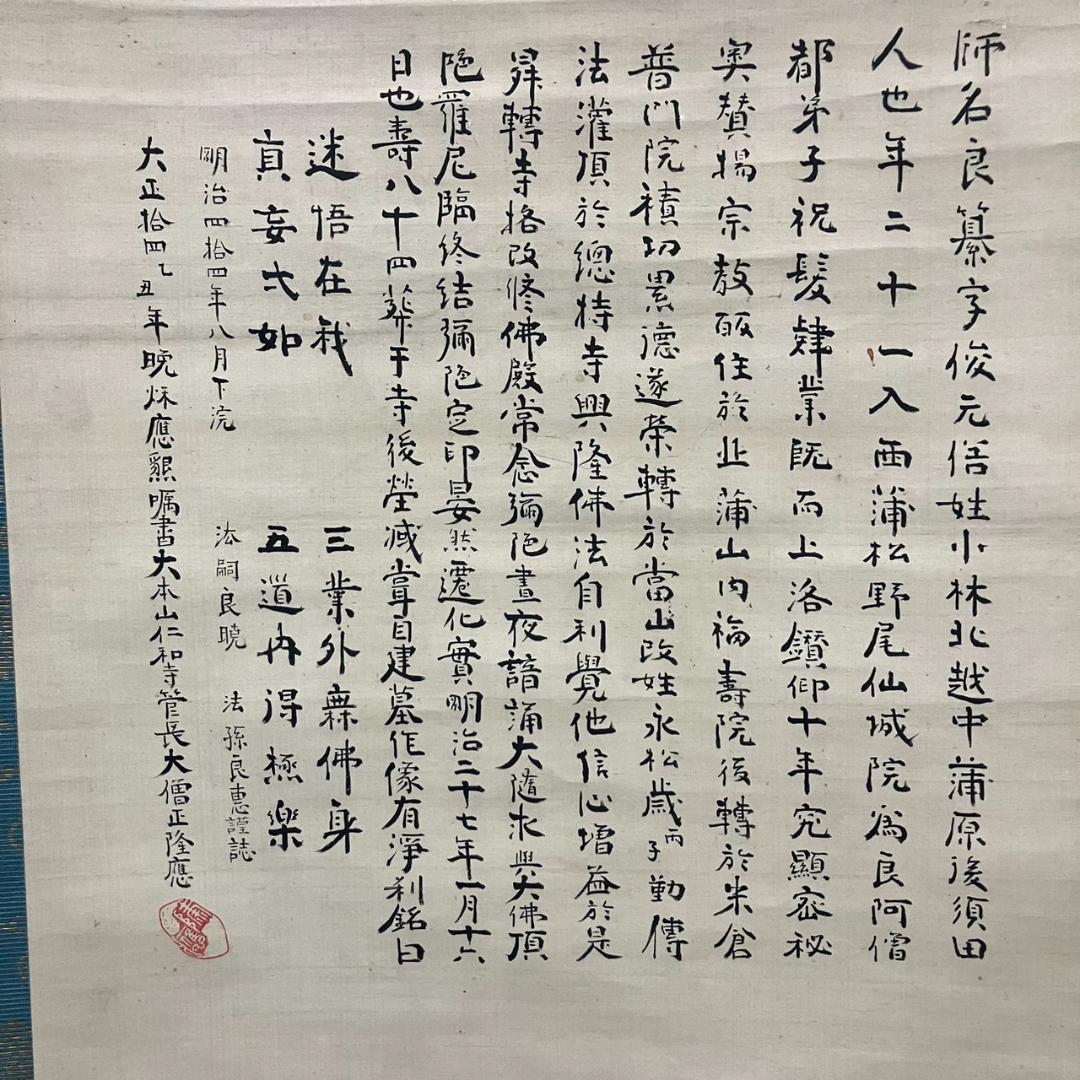 師名良纂字俊元俗姓小林北越中蒲原後須田
人也年二十一入西蒲松野尾仙城院為良阿僧
都弟子祝髮肄業既而上洛鑽仰十年究顯密秘
奥賛揚宗教皈住於北蒲山内福壽院後轉於米倉
普門院積功累德遂榮轉於當山改姓永松歲丙子勤傳
法灌頂於總持寺興隆佛法自利覺他信心增益於是
昇轉寺格改修佛殿常念彌陀晝夜諳誦大隨求與大佛頂
陀羅尼臨終結彌陀定印晏然遷化實明治二十七年一月十六
日也壽八十四葬于寺後塋減嘗自建墓作像有淨利銘曰
迷悟在我 三業外無佛身
真妄弌如 五道冉得極樂
明治四拾四年八月下浣 法嗣良曉 法孫良惠謹誌
大正拾四乙丑年晩秌應懇嘱書大本山仁和寺管長大僧正隆應